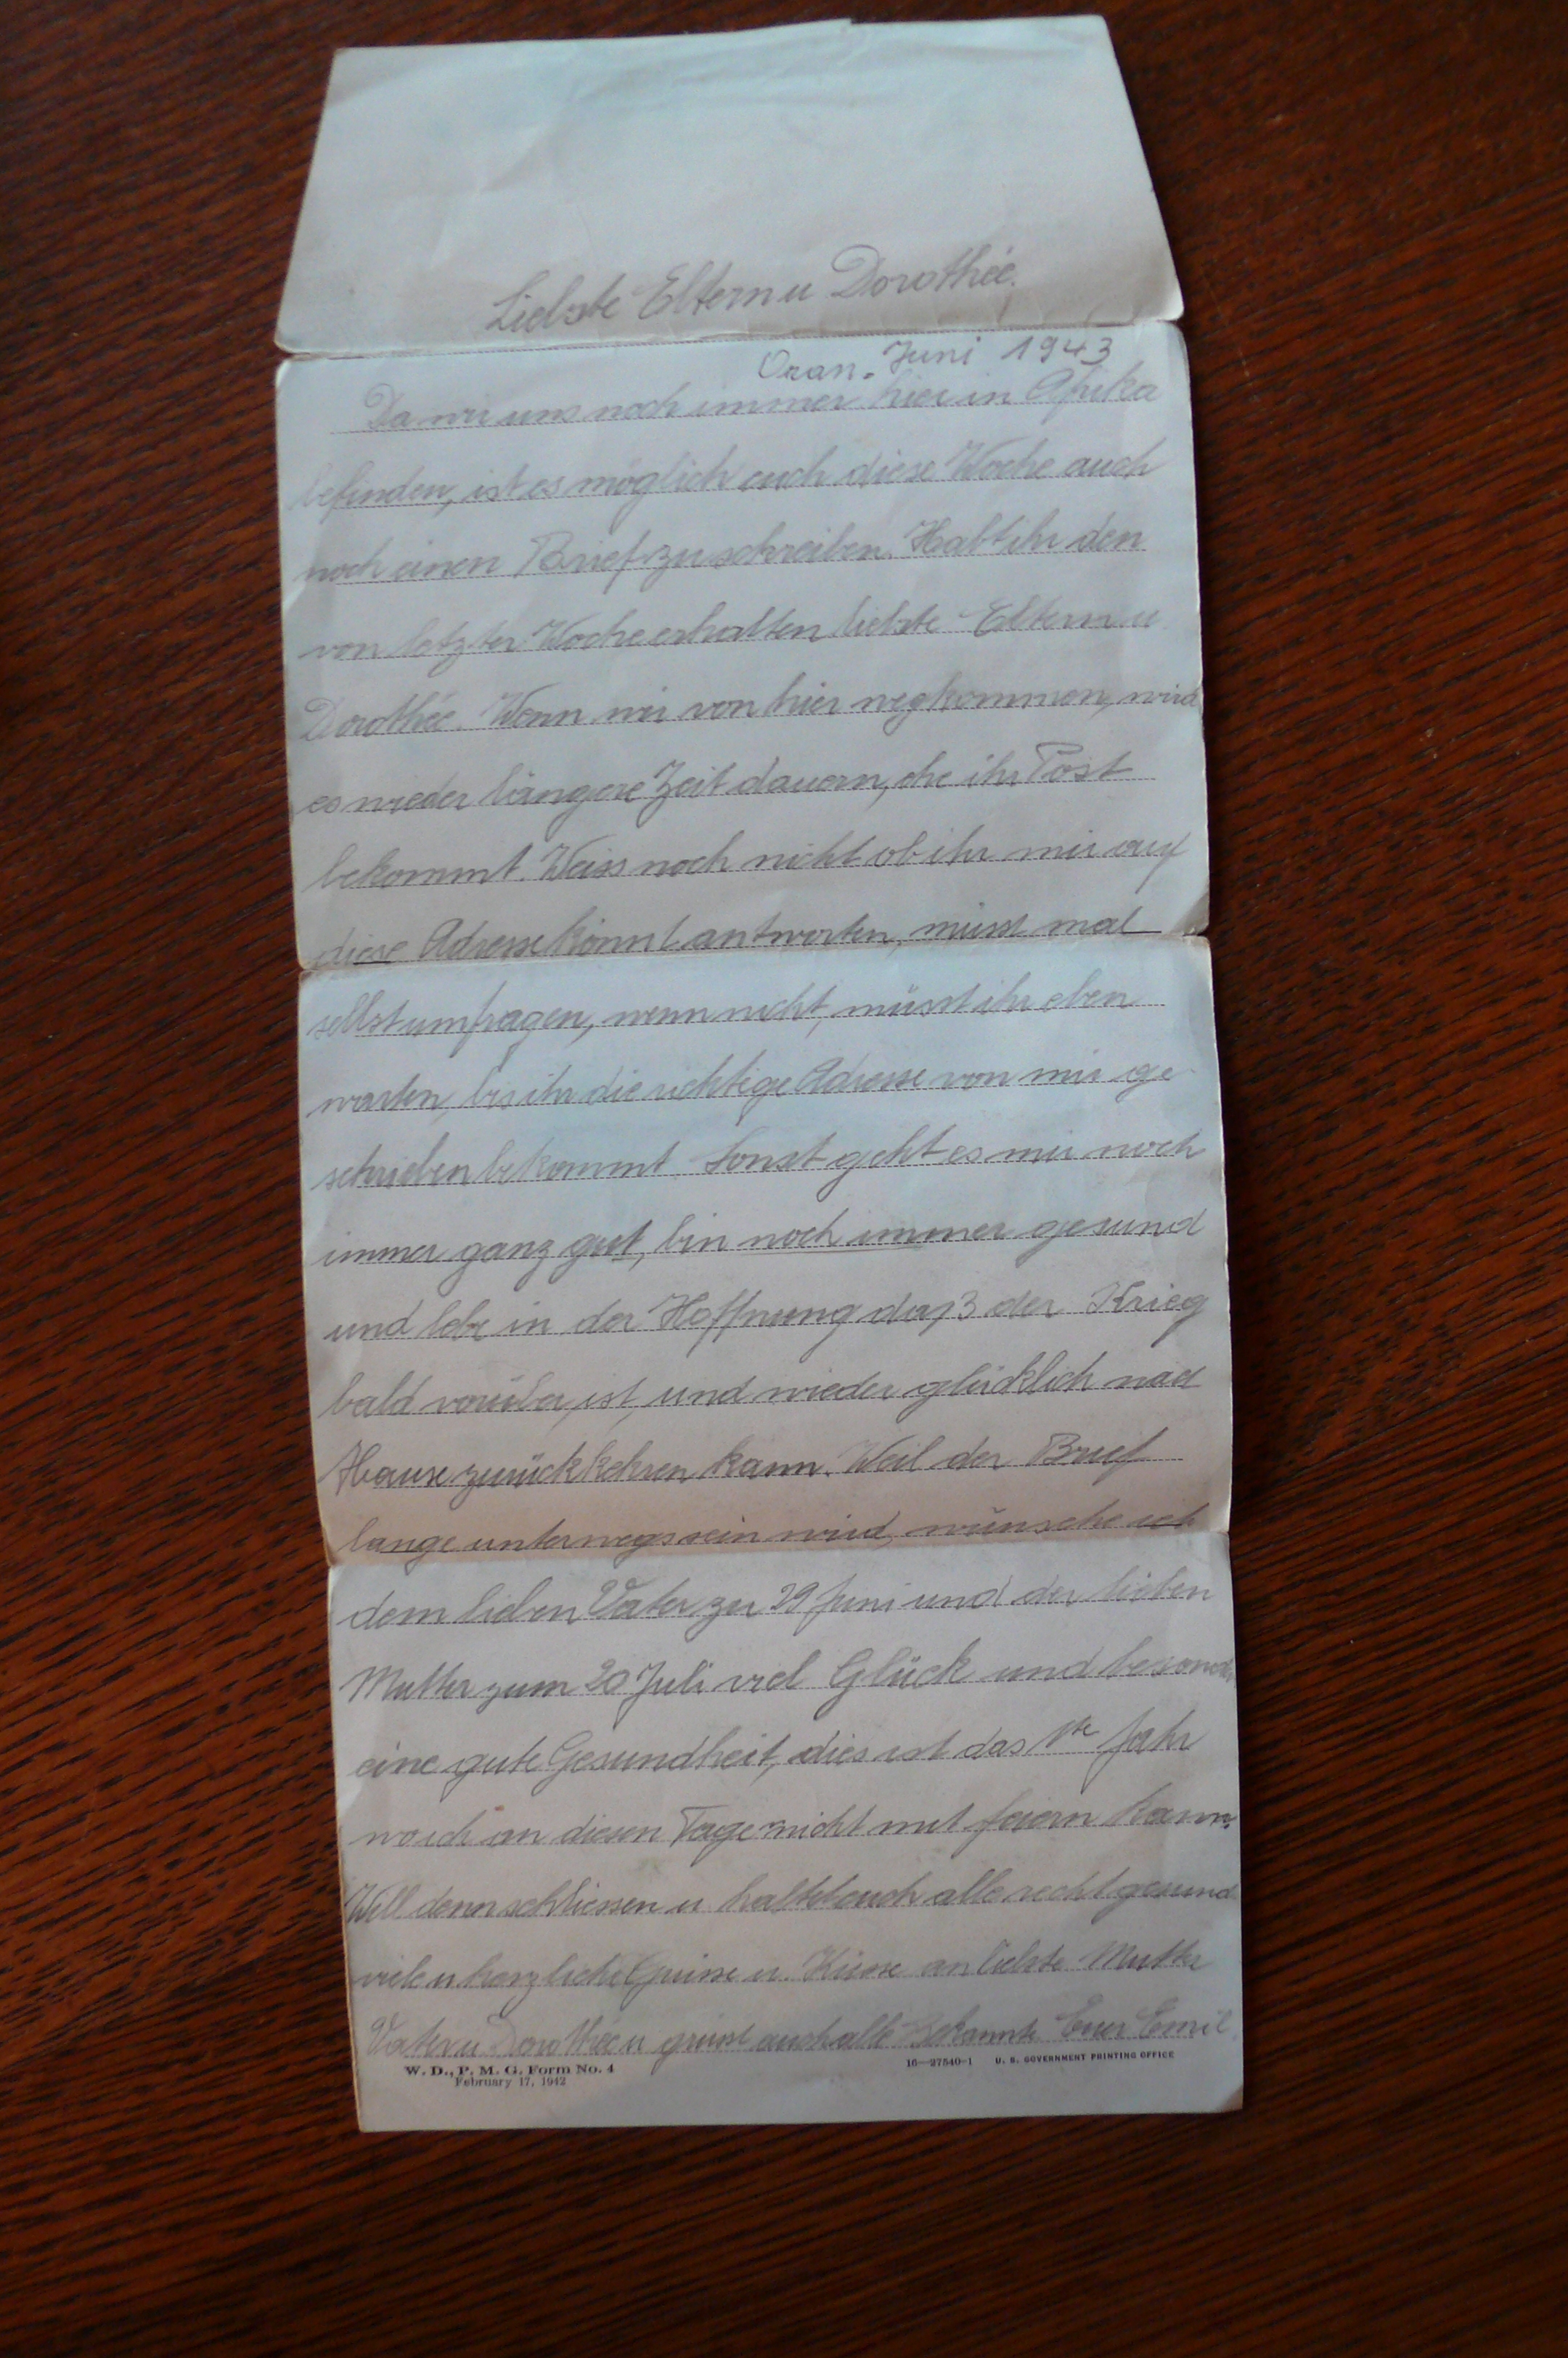 Liebste Eltern u Dorothée.
Oran. Juni 1943
Da wir uns noch immer hier in Afrika
befinden, ist es möglich euch diese Woche auch
noch einen Brief zu schreiben. Habt ihr den
von letzter Woche erhalten liebste Eltern u
Dorothée. Wenn wir von hier wegkommen, wird
es wieder längere Zeit dauern, ehe ihr Post
bekommt. Weiss noch nicht ob ihr mir auf
diese Adresse könnt antworten, müsst mal
selbst umfragen, wenn nicht, müsst ihr eben
warten, bis ihr die richtige Adresse von mir ge-
schrieben bekommt. Sonst geht es mir noch
immer ganz gut, bin noch immer gesund
und lebe in der Hoffnung daß der Krieg
bald vorüber ist, und wieder glücklich nach
Hause zurückkehren kann. Weil der Brief
lange unterwegs sein wird, wünsche ich
dem lieben Vater zu 29 Juni und der lieben
Mutter zum 20 Juli viel Glück und besonders
eine gute Gesundheit, dies ist das 1te Jahr
wo ich an diesen Tage nicht mit feiern kann.
Will denn schliessen u. haltet euch alle recht gesund
viele u. herzliche Grüsse u. Küsse an liebste Mutter
Vater u. Dorothée u grüsst auch alle Bekannte Euer Emil.
W. D., P. M. G. Form No. 4
February 17, 1942
16—27540-1 U. S. GOVERNMENT PRINTING OFFICE